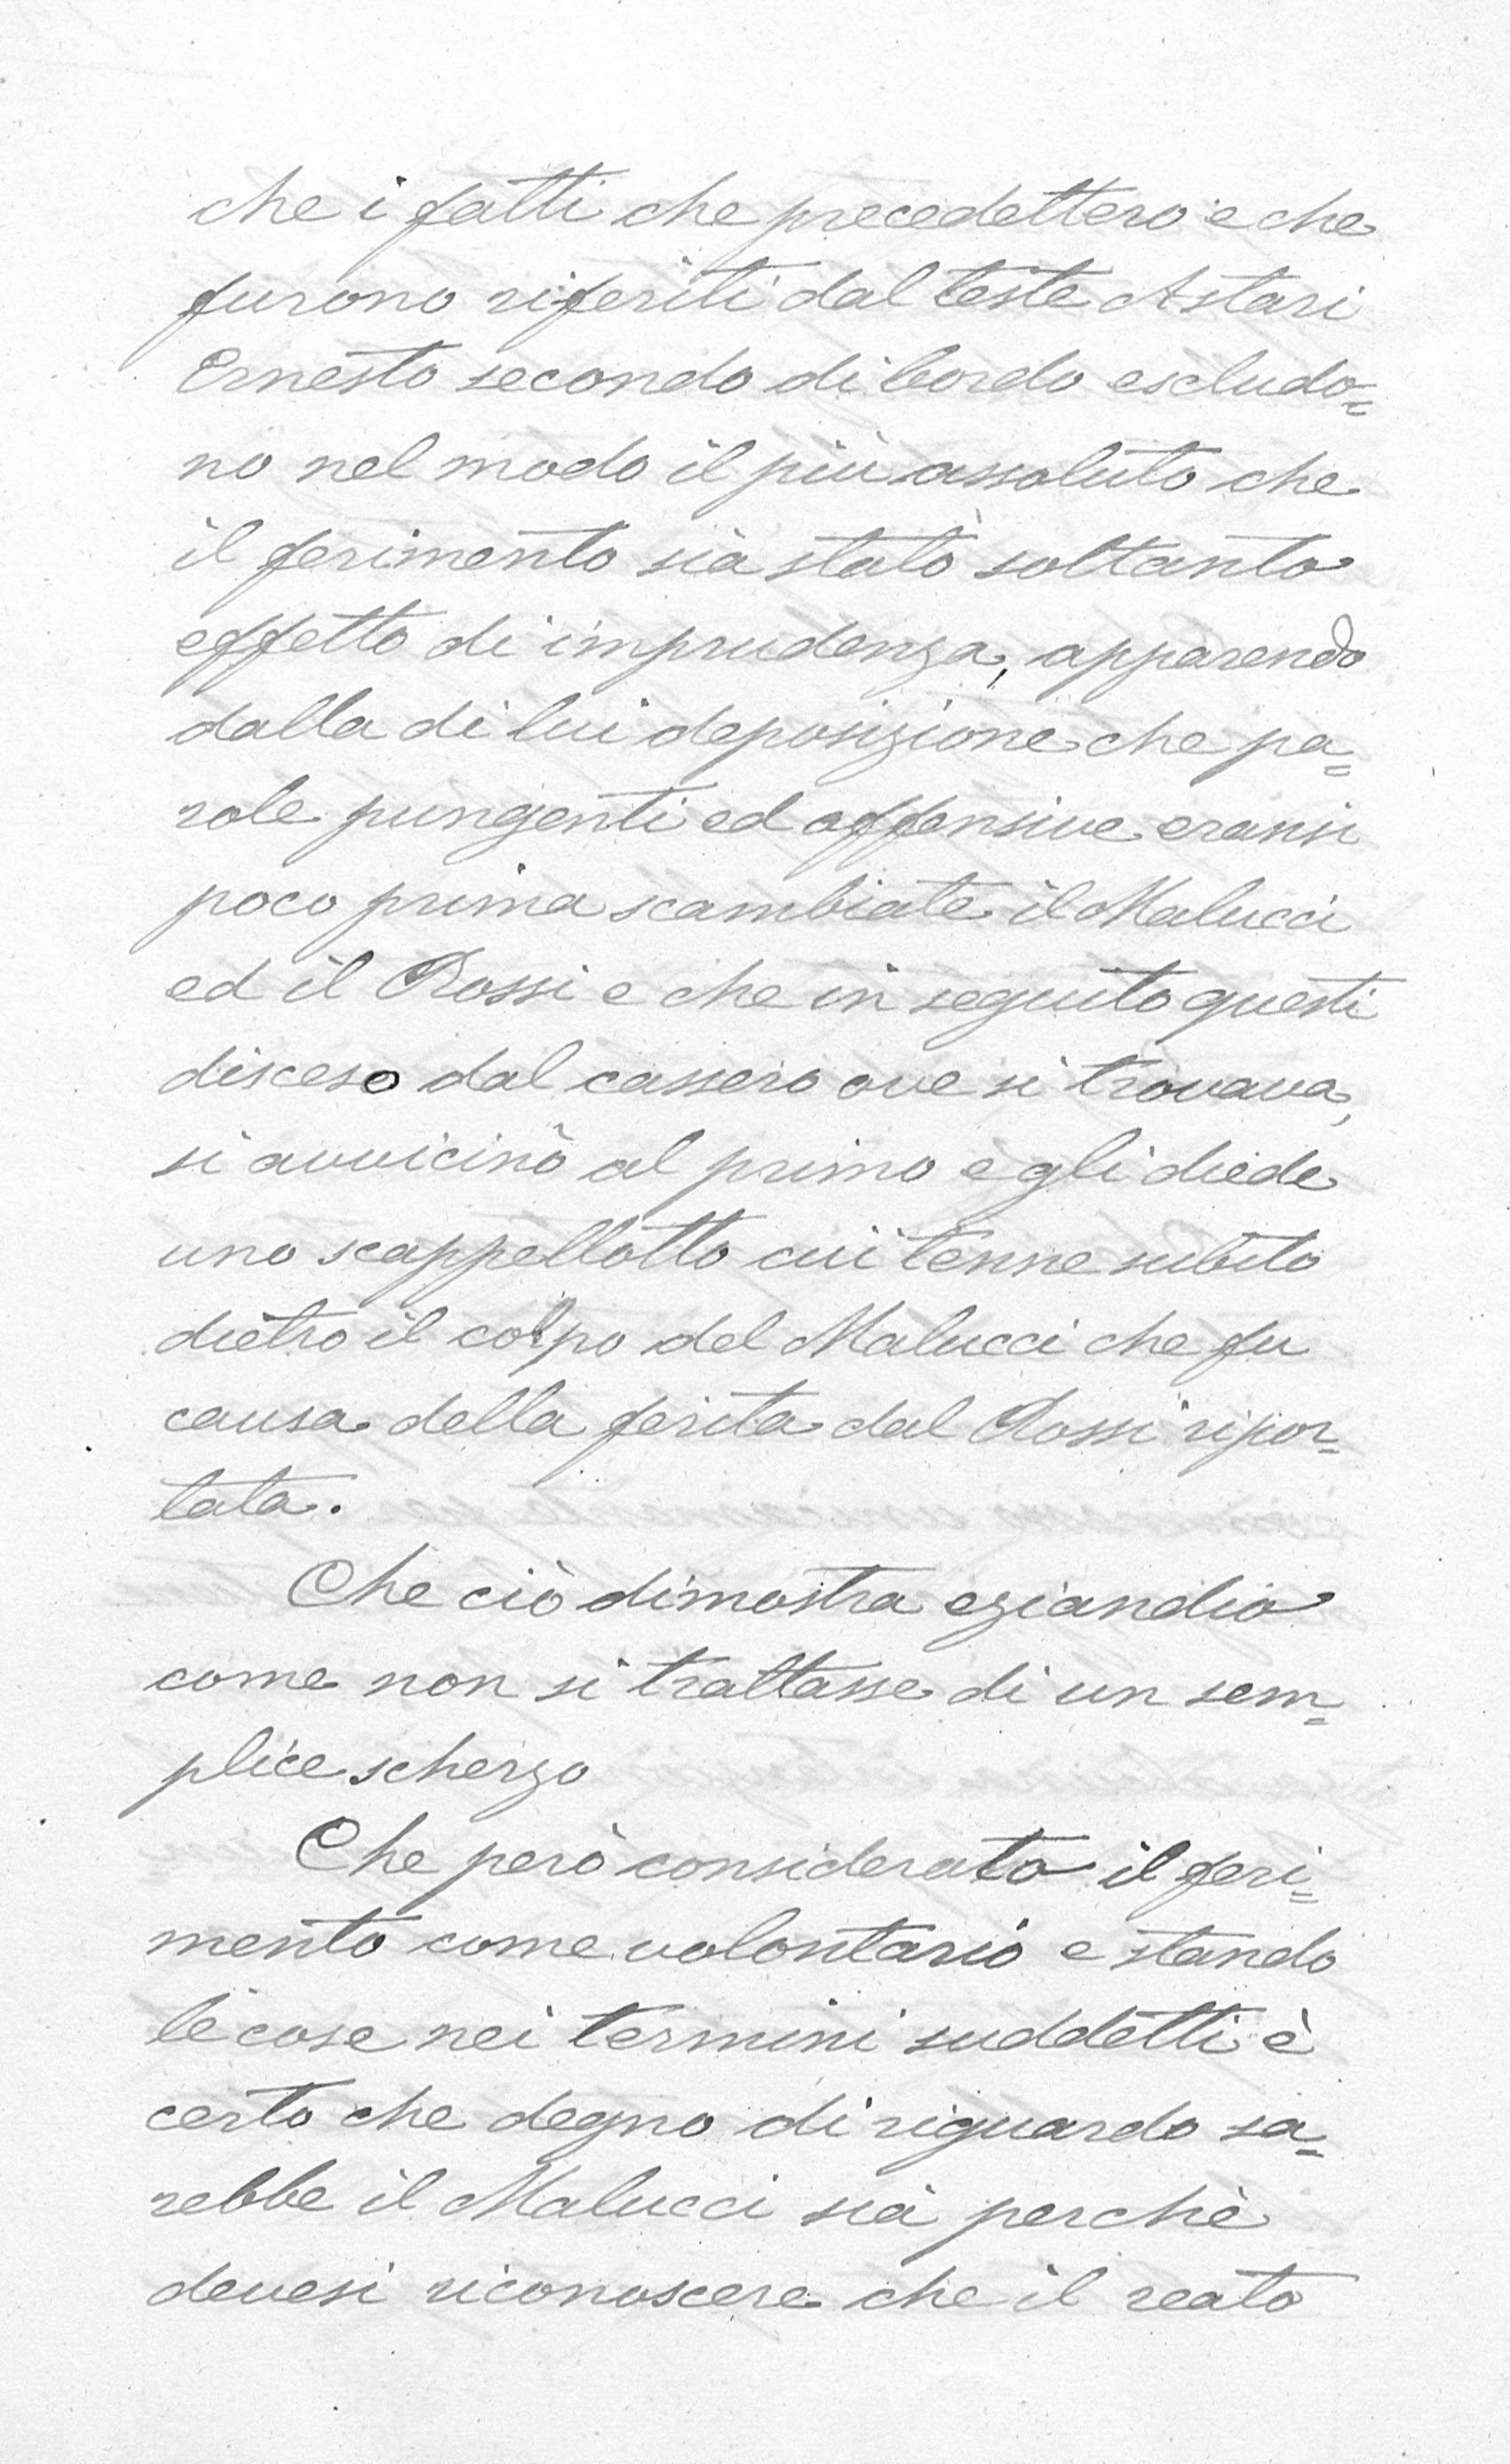 che i fatti che precedettero e che
furono riferiti dal teste Astari
Ernesto secondo di bordo escludo=
no nel modo il più assoluto che
il ferimento sia stato soltanto
effetto di imprudenza, apparendo
dalla di lui deposizione che pa=
role pungenti ed offensive eransi
poco prima scambiate il Malucci
ed il Rossi e che in seguito questi
disceso dal cassero ove si trovava,
si avvicinò al primo e gli diede
uno scappellotto cui tenne subito
dietro il colpo del Malucci che fu
causa della ferita dal Rossi ripor=
tata.
Che ciò dimostra eziandio
come non si trattasse di un sem=
plice scherzo
Che però considerato il feri=
mento come volontario e stando
le cose nei termini suddetti è
certo che degno di riguardo sa=
rebbe il Malucci sia perchè
devesi riconoscere che il reato